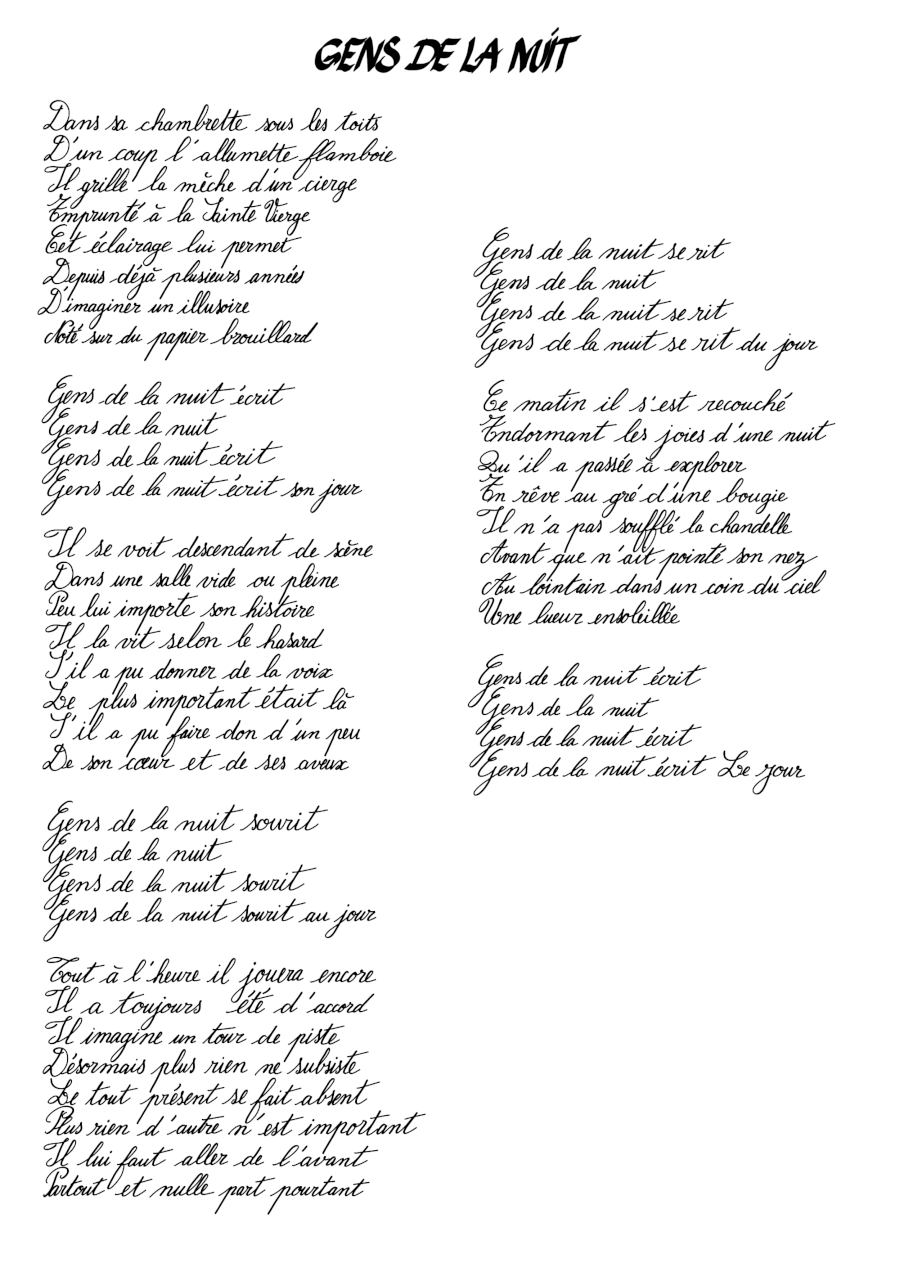 GENS DE LA NUIT
Dans sa chambrette sous les toits
D'un coup l'allumette flamboie
Il grille la mèche d'un cierge
Emprunté à la Sainte Vierge
Cet éclairage lui permet
Depuis déjà plusieurs années
D'imaginer un illusoire
Noté sur du papier brouillard
Gens de la nuit écrit
Gens de la nuit
Gens de la nuit écrit
Gens de la nuit écrit son jour
Il se voit descendant de scène
Dans une salle vide ou pleine
Peu lui importe son histoire
Il la vit selon le hasard
S'il a pu donner de la voix
Le plus important était là
S'il a pu faire don d'un peu
De son cœur et de ses aveux
Gens de la nuit sourit
Gens de la nuit
Gens de la nuit sourit
Gens de la nuit sourit au jour
Tout à l'heure il jouera encore
Il a toujours été d'accord
Il imagine un tour de piste
Désormais plus rien ne subsiste
Le tout présent se fait absent
Plus rien d'autre n'est important
Il lui faut aller de l'avant
Partout et nulle part pourtant
Gens de la nuit se rit
Gens de la nuit
Gens de la nuit se rit
Gens de la nuit se rit du jour
Ce matin il s'est recouché
Endormant les joies d'une nuit
Qu'il a passée à explorer
En rêve au gré d'une bougie
Il n'a pas soufflé la chandelle
Avant que n'ait pointé son nez
Au lointain dans un coin du ciel
Une lueur ensoleillée
Gens de la nuit écrit
Gens de la nuit
Gens de la nuit écrit
Gens de la nuit écrit Le jour